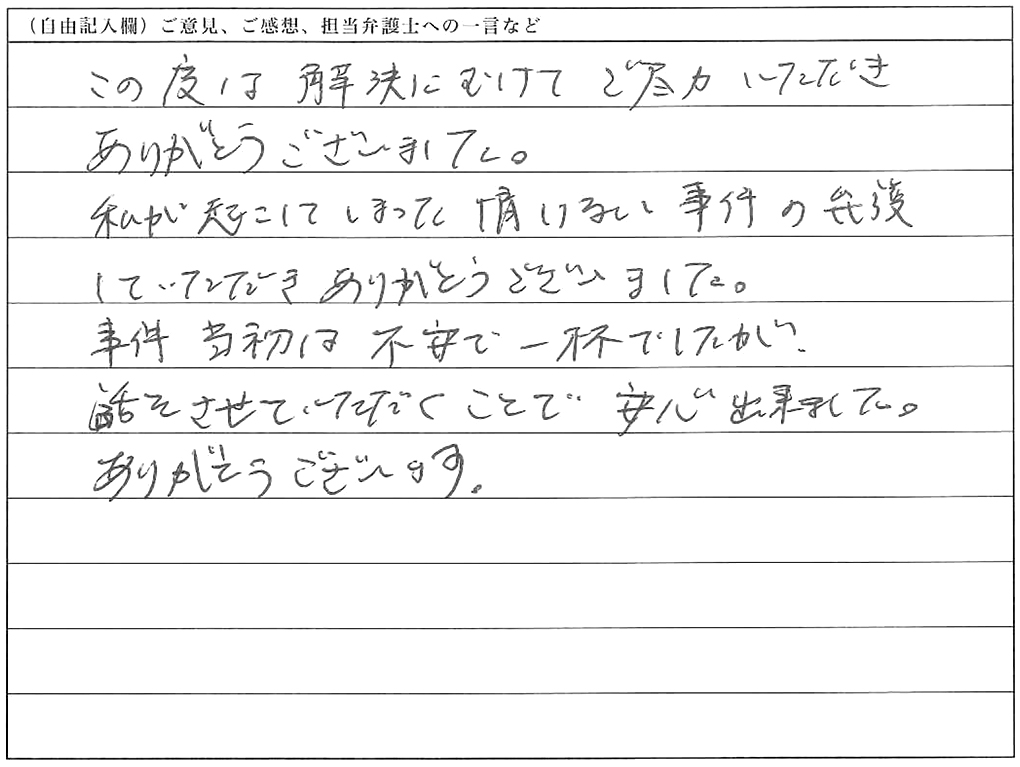 (自由記入欄)ご意見、ご感想、担当弁護士への一言など
この度は解決にむけてご尽力いただき
ありがとうございました。
私が起こしてしまった情けない事件の弁護
していただきありがとうございました。
事件当初は不安で一杯でしたが、
話をさせていただくことで安心出来ました。
ありがとうございます。